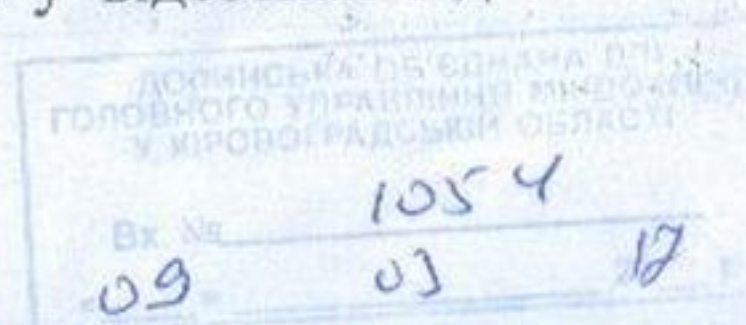 ДОЛИНСЬКА ОБ'ЄДНАНА ДПІ
ГОЛОВНОГО УПРАВЛІННЯ МІНДОХОДІВ
У КІРОВОГРАДСЬКІЙ ОБЛАСТІ
Вх № 1054
09 03 17